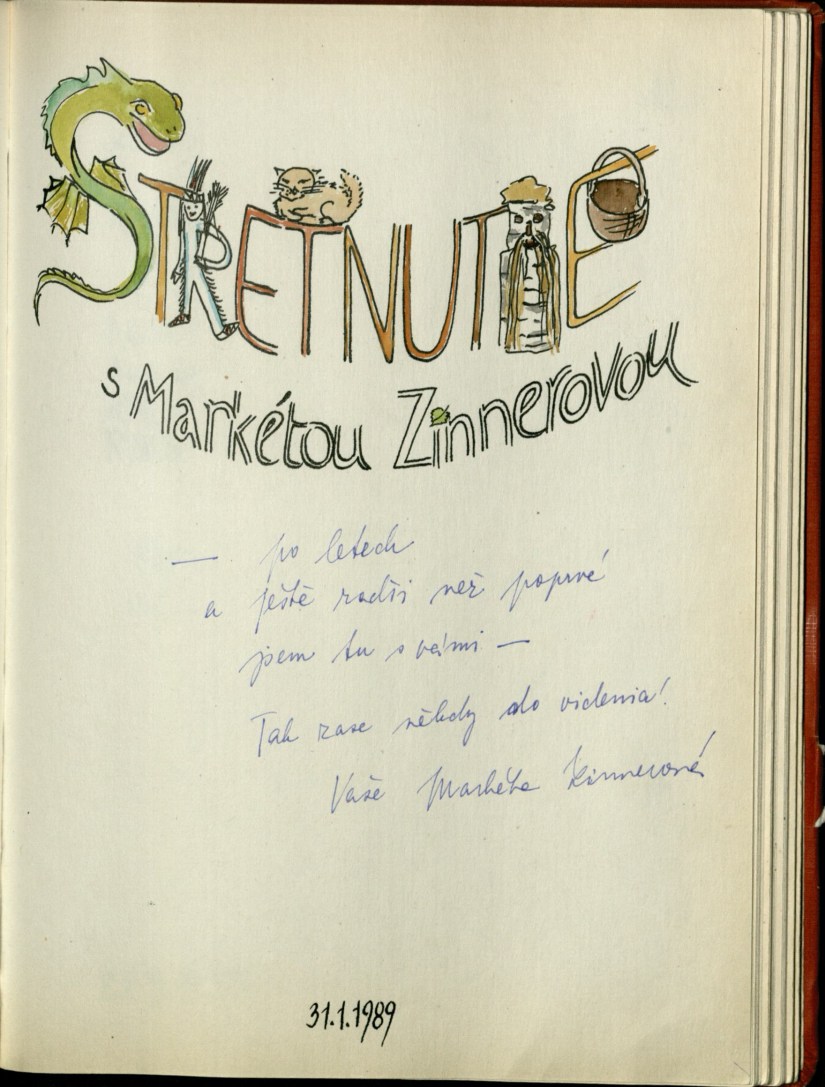 STRETNUTIE
s Markétou Zinnerovou
— po letech
a ještě radši než poprvé
jsem tu s vámi —
Tak zase někdy do videnia!
Vaše Markéta Zinnerová
31.1.1989